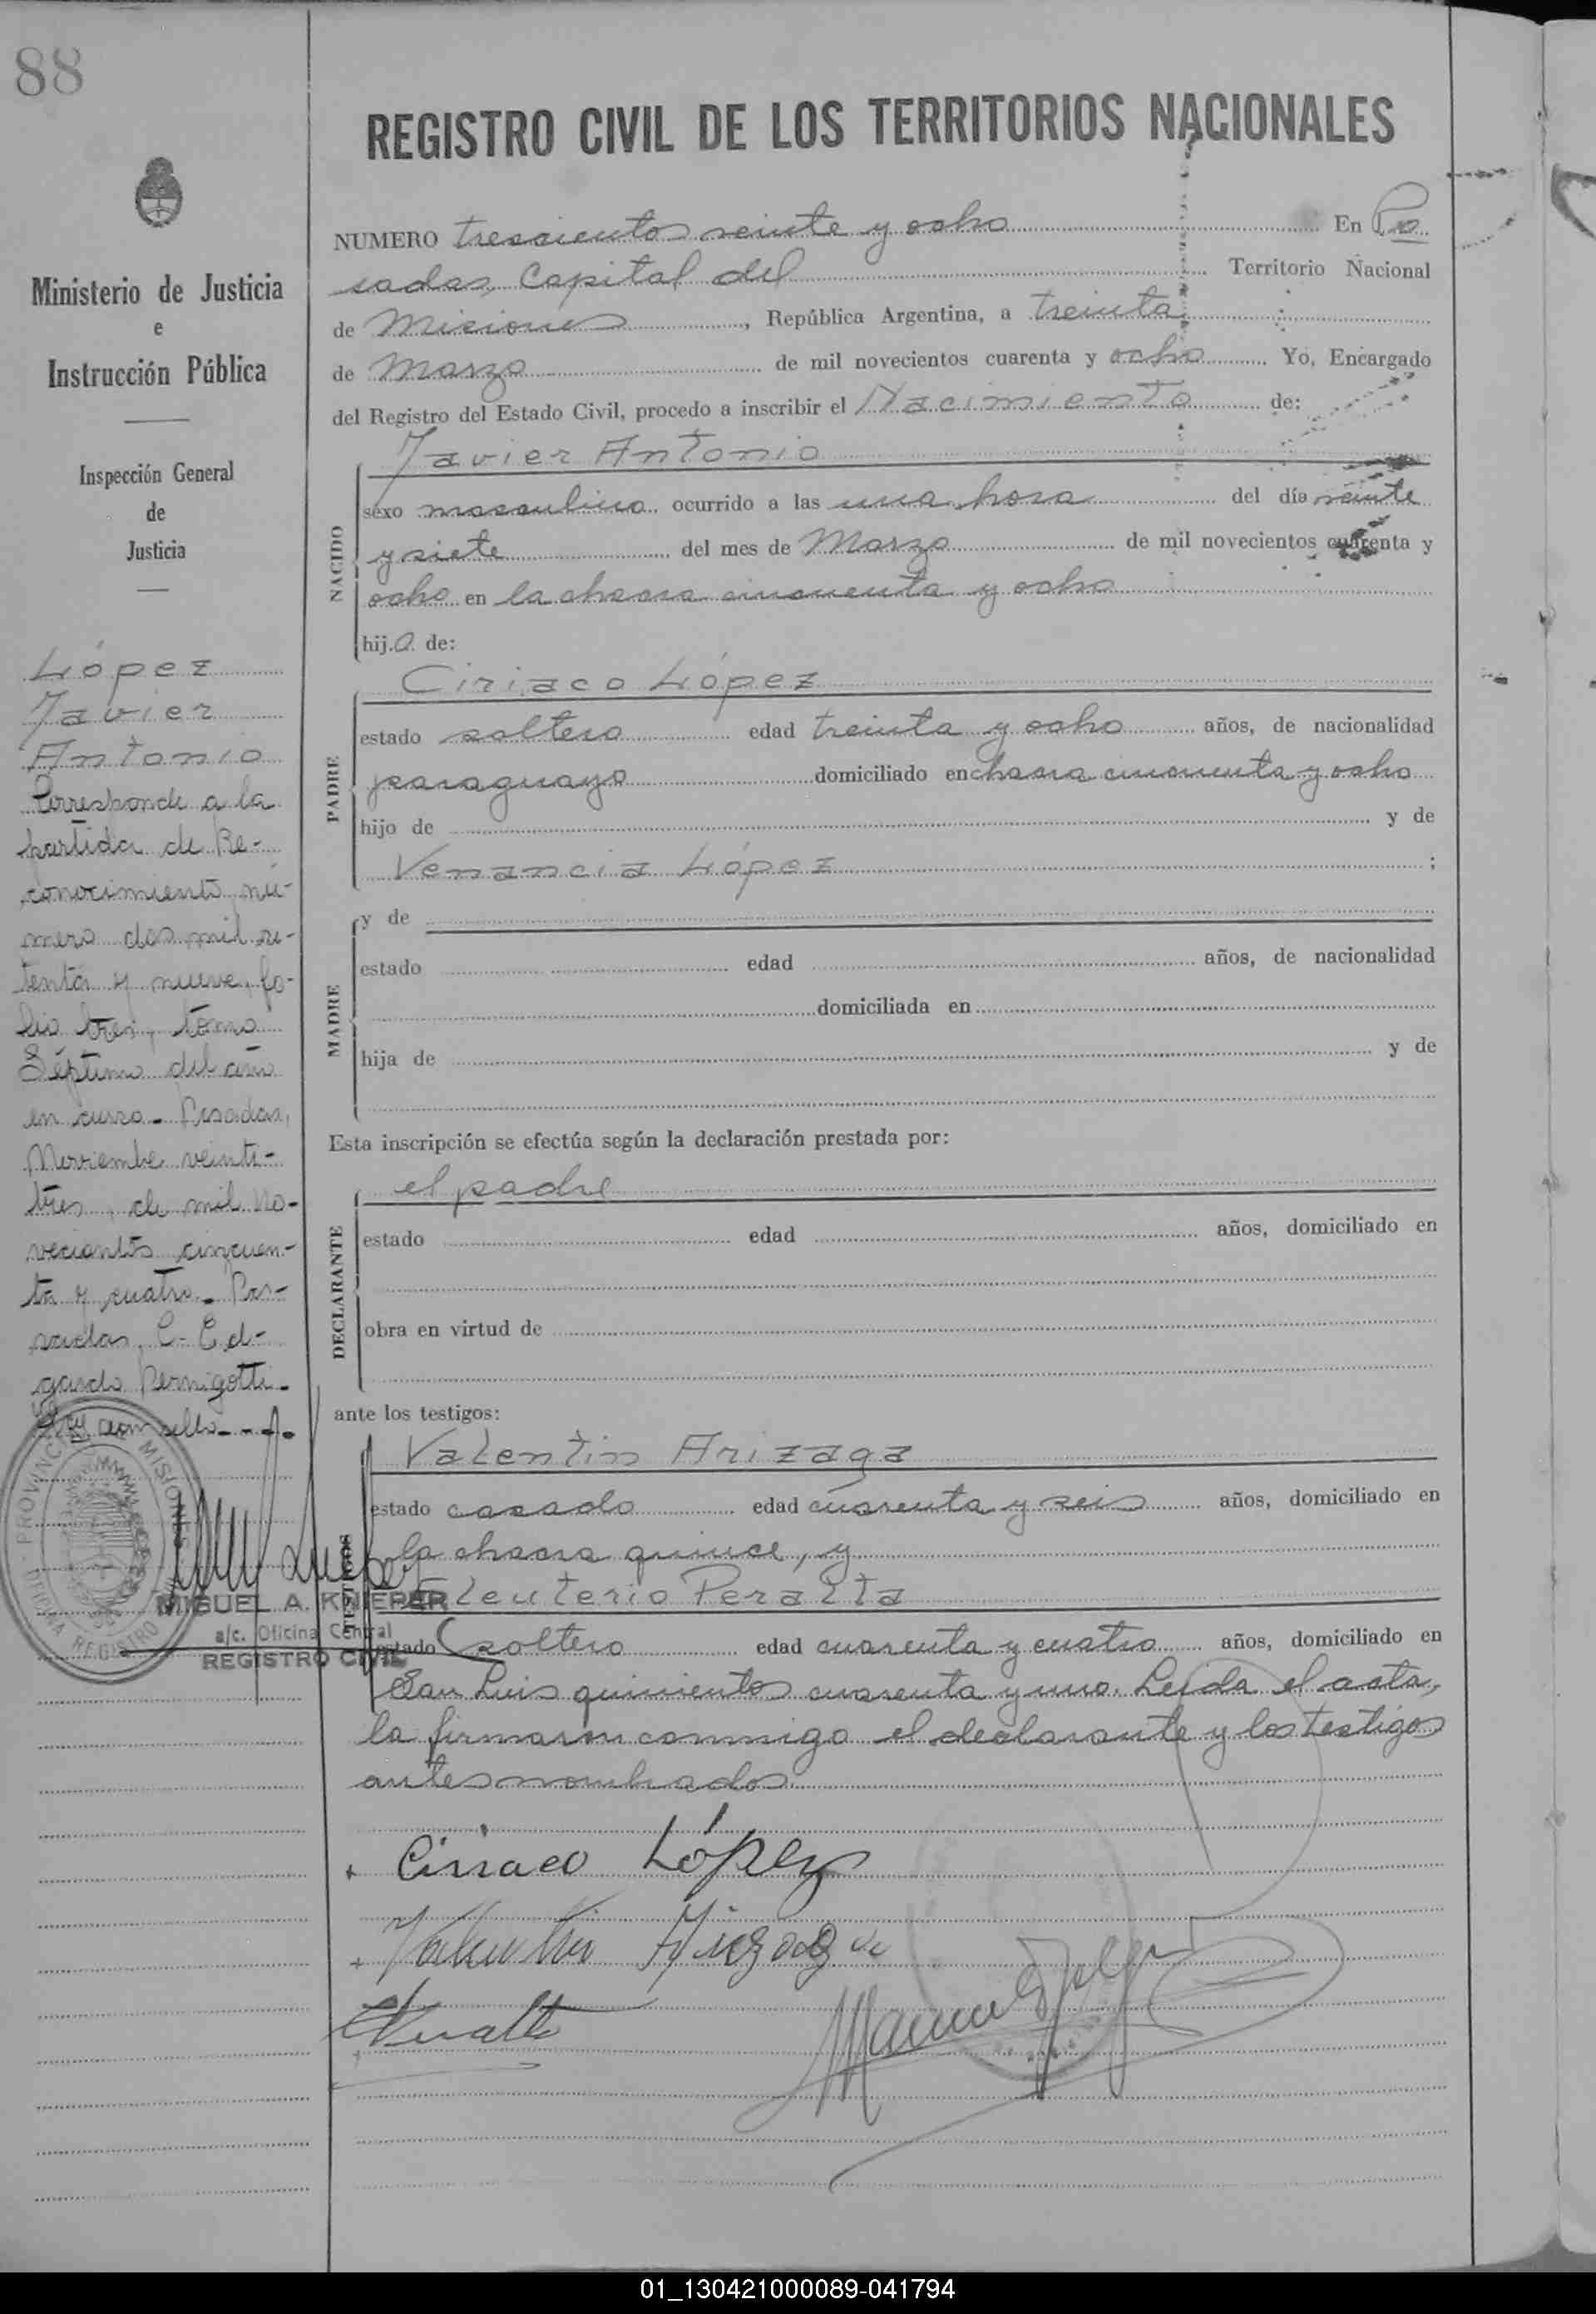 88
Ministerio de Justicia
e
Instrucción Pública
Inspección General
de
Justicia
López
Javier
Antonio
Corresponde a la
partida de Re-
conocimiento nú-
mero dos mil se-
tenta y nueve, fo-
lio tres, tomo
Séptimo del año
en curso. Posadas,
Noviembre veinti-
tres, de mil No-
vecientos cincuen-
ta y cuatro. Po-
sadas, C. Ed-
gardo Pernigotti.
Hay un sello.
PROVINCIA MISIONES
OFICINA REGISTRO
MIGUEL A. KNIEPER
a/c. Oficina Central
REGISTRO CIVIL
REGISTRO CIVIL DE LOS TERRITORIOS NACIONALES
NUMERO trescientos veinte y ocho En Po
sadas, Capital del Territorio Nacional
de Misiones, República Argentina, a treinta
de Marzo de mil novecientos cuarenta y ocho Yo, Encargado
del Registro del Estado Civil, procedo a inscribir el Nacimiento de:
Javier Antonio
NACIDO
sexo masculino ocurrido a las una hora del día veinte
y siete del mes de Marzo de mil novecientos cuarenta y
ocho en la chacra cincuenta y ocho
hij.o de:
Ciriaco López
PADRE
estado soltero edad treinta y ocho años, de nacionalidad
paraguayo domiciliado en chacra cincuenta y ocho
hijo de y de
Venancia López ;
MADRE
y de
estado edad años, de nacionalidad
domiciliada en
hija de y de
Esta inscripción se efectúa según la declaración prestada por:
el padre
DECLARANTE
estado edad años, domiciliado en
obra en virtud de
ante los testigos:
Valentin Arizaga
TESTIGOS
estado casado edad cuarenta y seis años, domiciliado en
la chacra quince, y
Eleuterio Peralta
estado soltero edad cuarenta y cuatro años, domiciliado en
San Luis quinientos cuarenta y uno. Leida el acta,
la firmaron conmigo el declarante y los testigos
antes nombrados.
Ciriaco López
Valentin Arizaga
EPeralta
Manuel
01_130421000089-041794